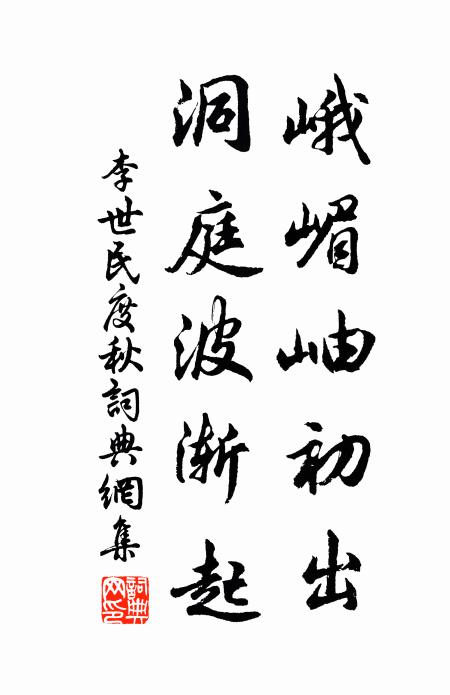 峨嵋岫初出
洞庭波渐起
李世民度秋詞典網集
詞典